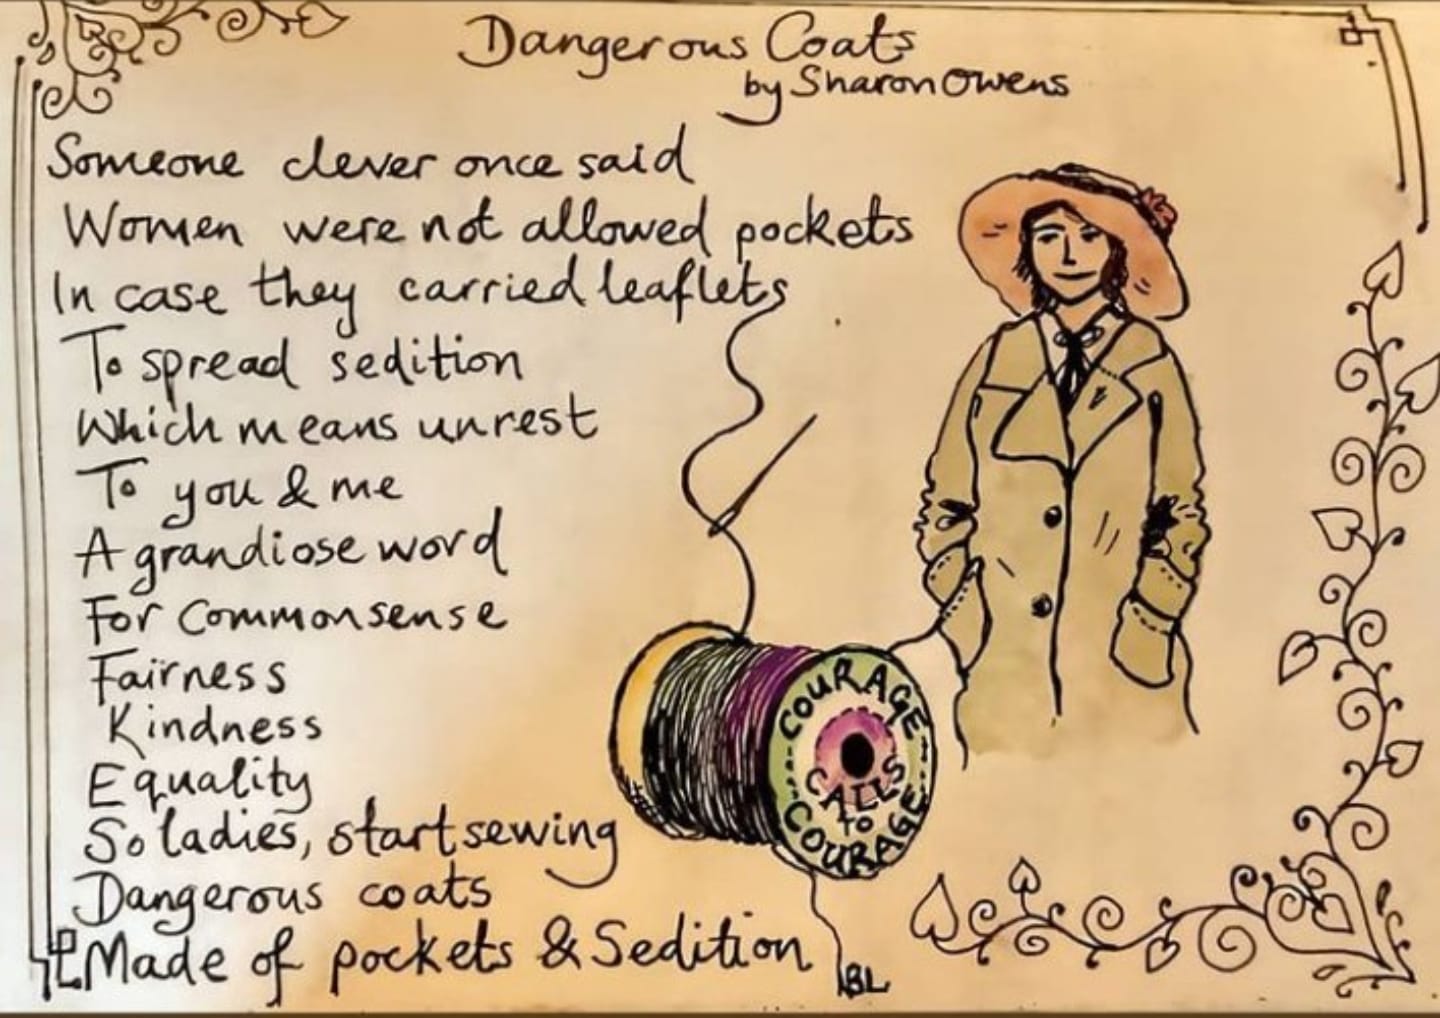 Dangerous Coats
by Sharon Owens
Someone clever once said
Women were not allowed pockets
In case they carried leaflets
To spread sedition
Which means unrest
To you & me
A grandiose word
For commonsense
Fairness
Kindness
Equality
So ladies, start sewing
Dangerous coats
Made of pockets & Sedition
COURAGE
CALLS
TO
COURAGE
BL